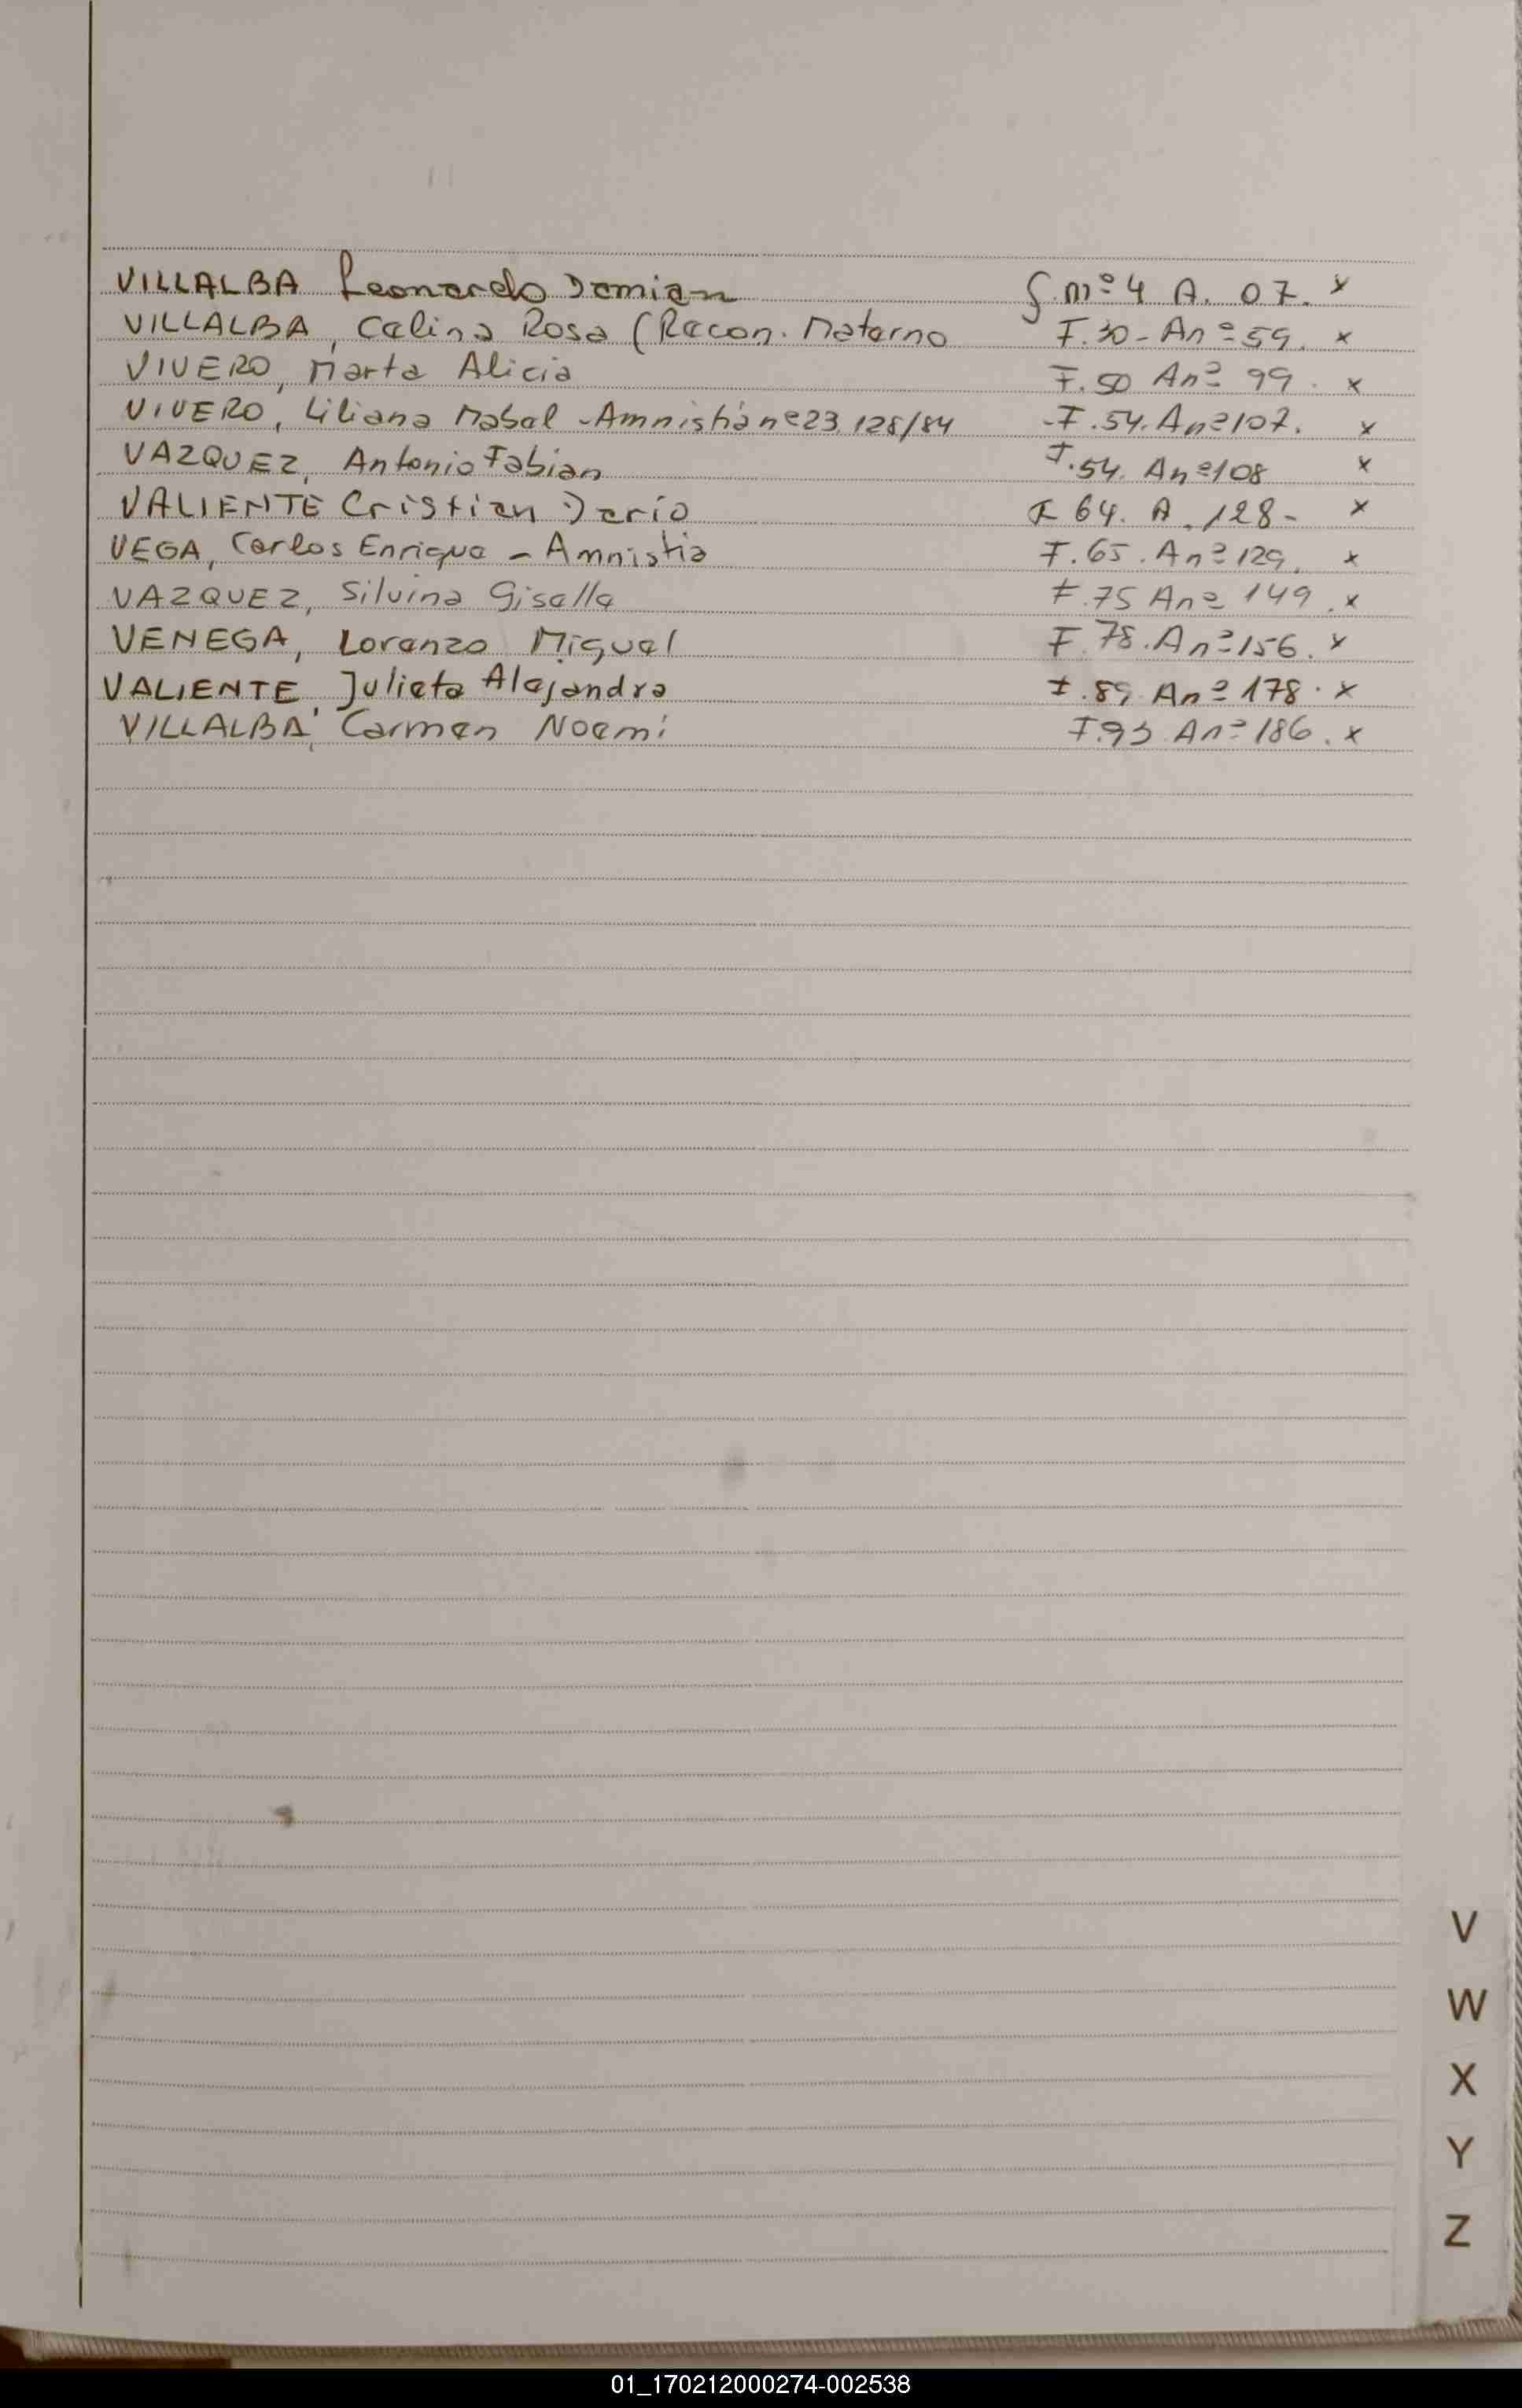 VILLALBA Leonardo Damian f. nº 4 A. 07. x
VILLALBA, Celina Rosa (Recon. Materno F.30- Anº 59. x
VIVERO, Marta Alicia F.50 Anº 99. x
VIVERO, Liliana Mabel - Amnistia nº 23.128/84 - F.54. Anº 107. x
VAZQUEZ, Antonio Fabian F.54. Anº 108 x
VALIENTE Cristian Dario F 64. A. 128- x
VEGA, Carlos Enrique - Amnistia F.65. Anº 129. x
VAZQUEZ, Silvina Gisella F.75 Anº 149. x
VENEGA, Lorenzo Miguel F.78. Anº 156. x
VALIENTE, Julieta Alejandra F.89 Anº 178. x
VILLALBA, Carmen Noemi F.93 Anº 186. x
V
W
X
Y
Z
01_170212000274-002538